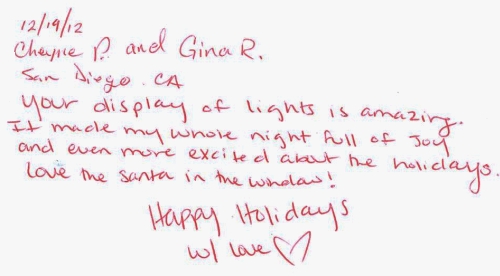 12/19/12
Chayne P. and Gina R.
San Diego. CA
Your display of lights is amazing.
It made my whole night full of Joy
and even more excited about the holidays.
Love the santa in the window!
Happy Holidays
w/ love ♡